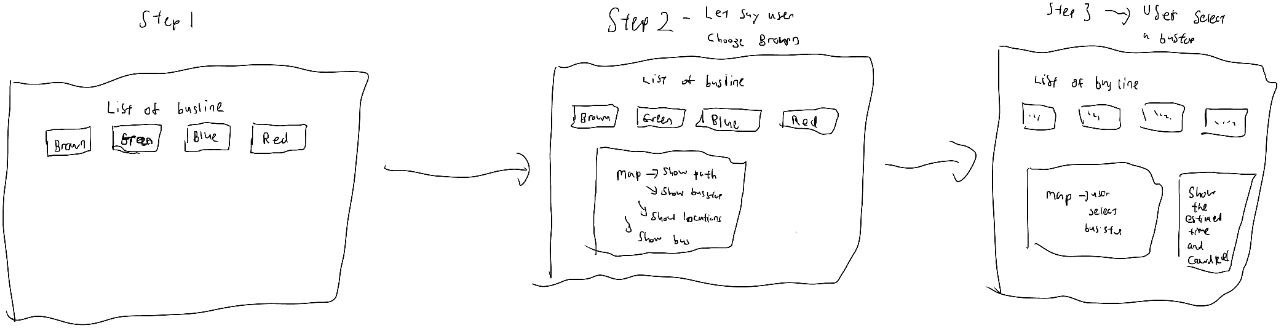 Step 1
List of busline
Brown
Green
Blue
Red
Step 2 - Let say user
Choose Brown
List of busline
Brown
Green
Blue
Red
Map → Show path
Show busstop
Show locations
Show bus
Step 3 → User select
a bustop
List of busline
...
...
...
....
Map → user
select
busstop
Show
the
time
and